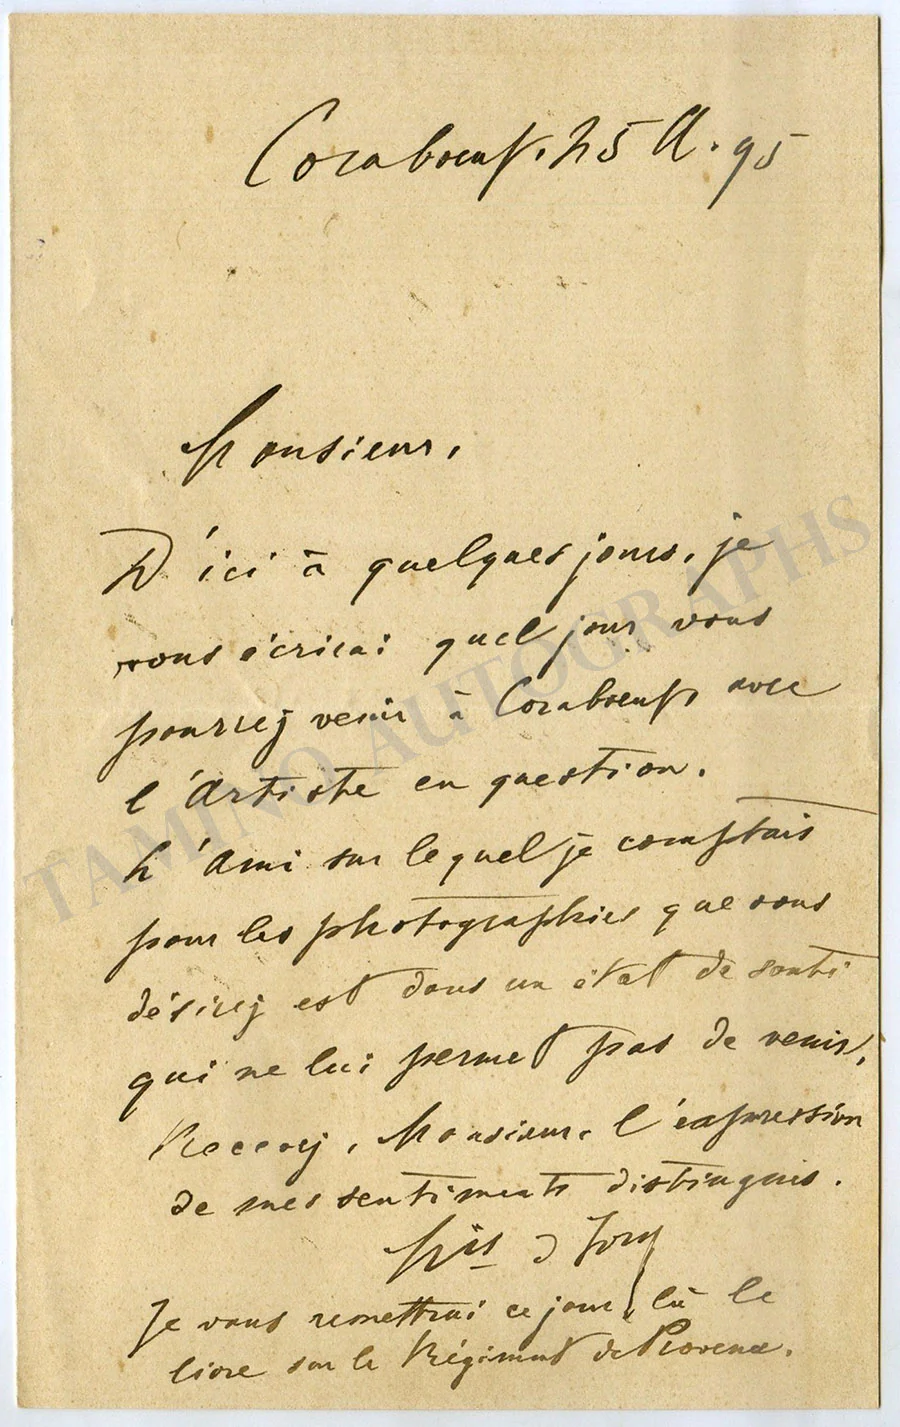 Coraboeuf. 25 A. 95
Monsieur,
D'ici à quelques jours, je
vous écrirai quel jour vous
pourrez venir à Coraboeuf, avec
l'Artiste en question.
L'Ami sur lequel je comptais
pour les photographies que vous
désirez est dans un état de santé
qui ne lui permet pas de venir.
Recevez, Monsieur, l'expression
de mes sentiments distingués.
Mis d
Je vous remettrai ce jour là le
livre sur le Régiment de Provence.
TAMINO AUTOGRAPHS